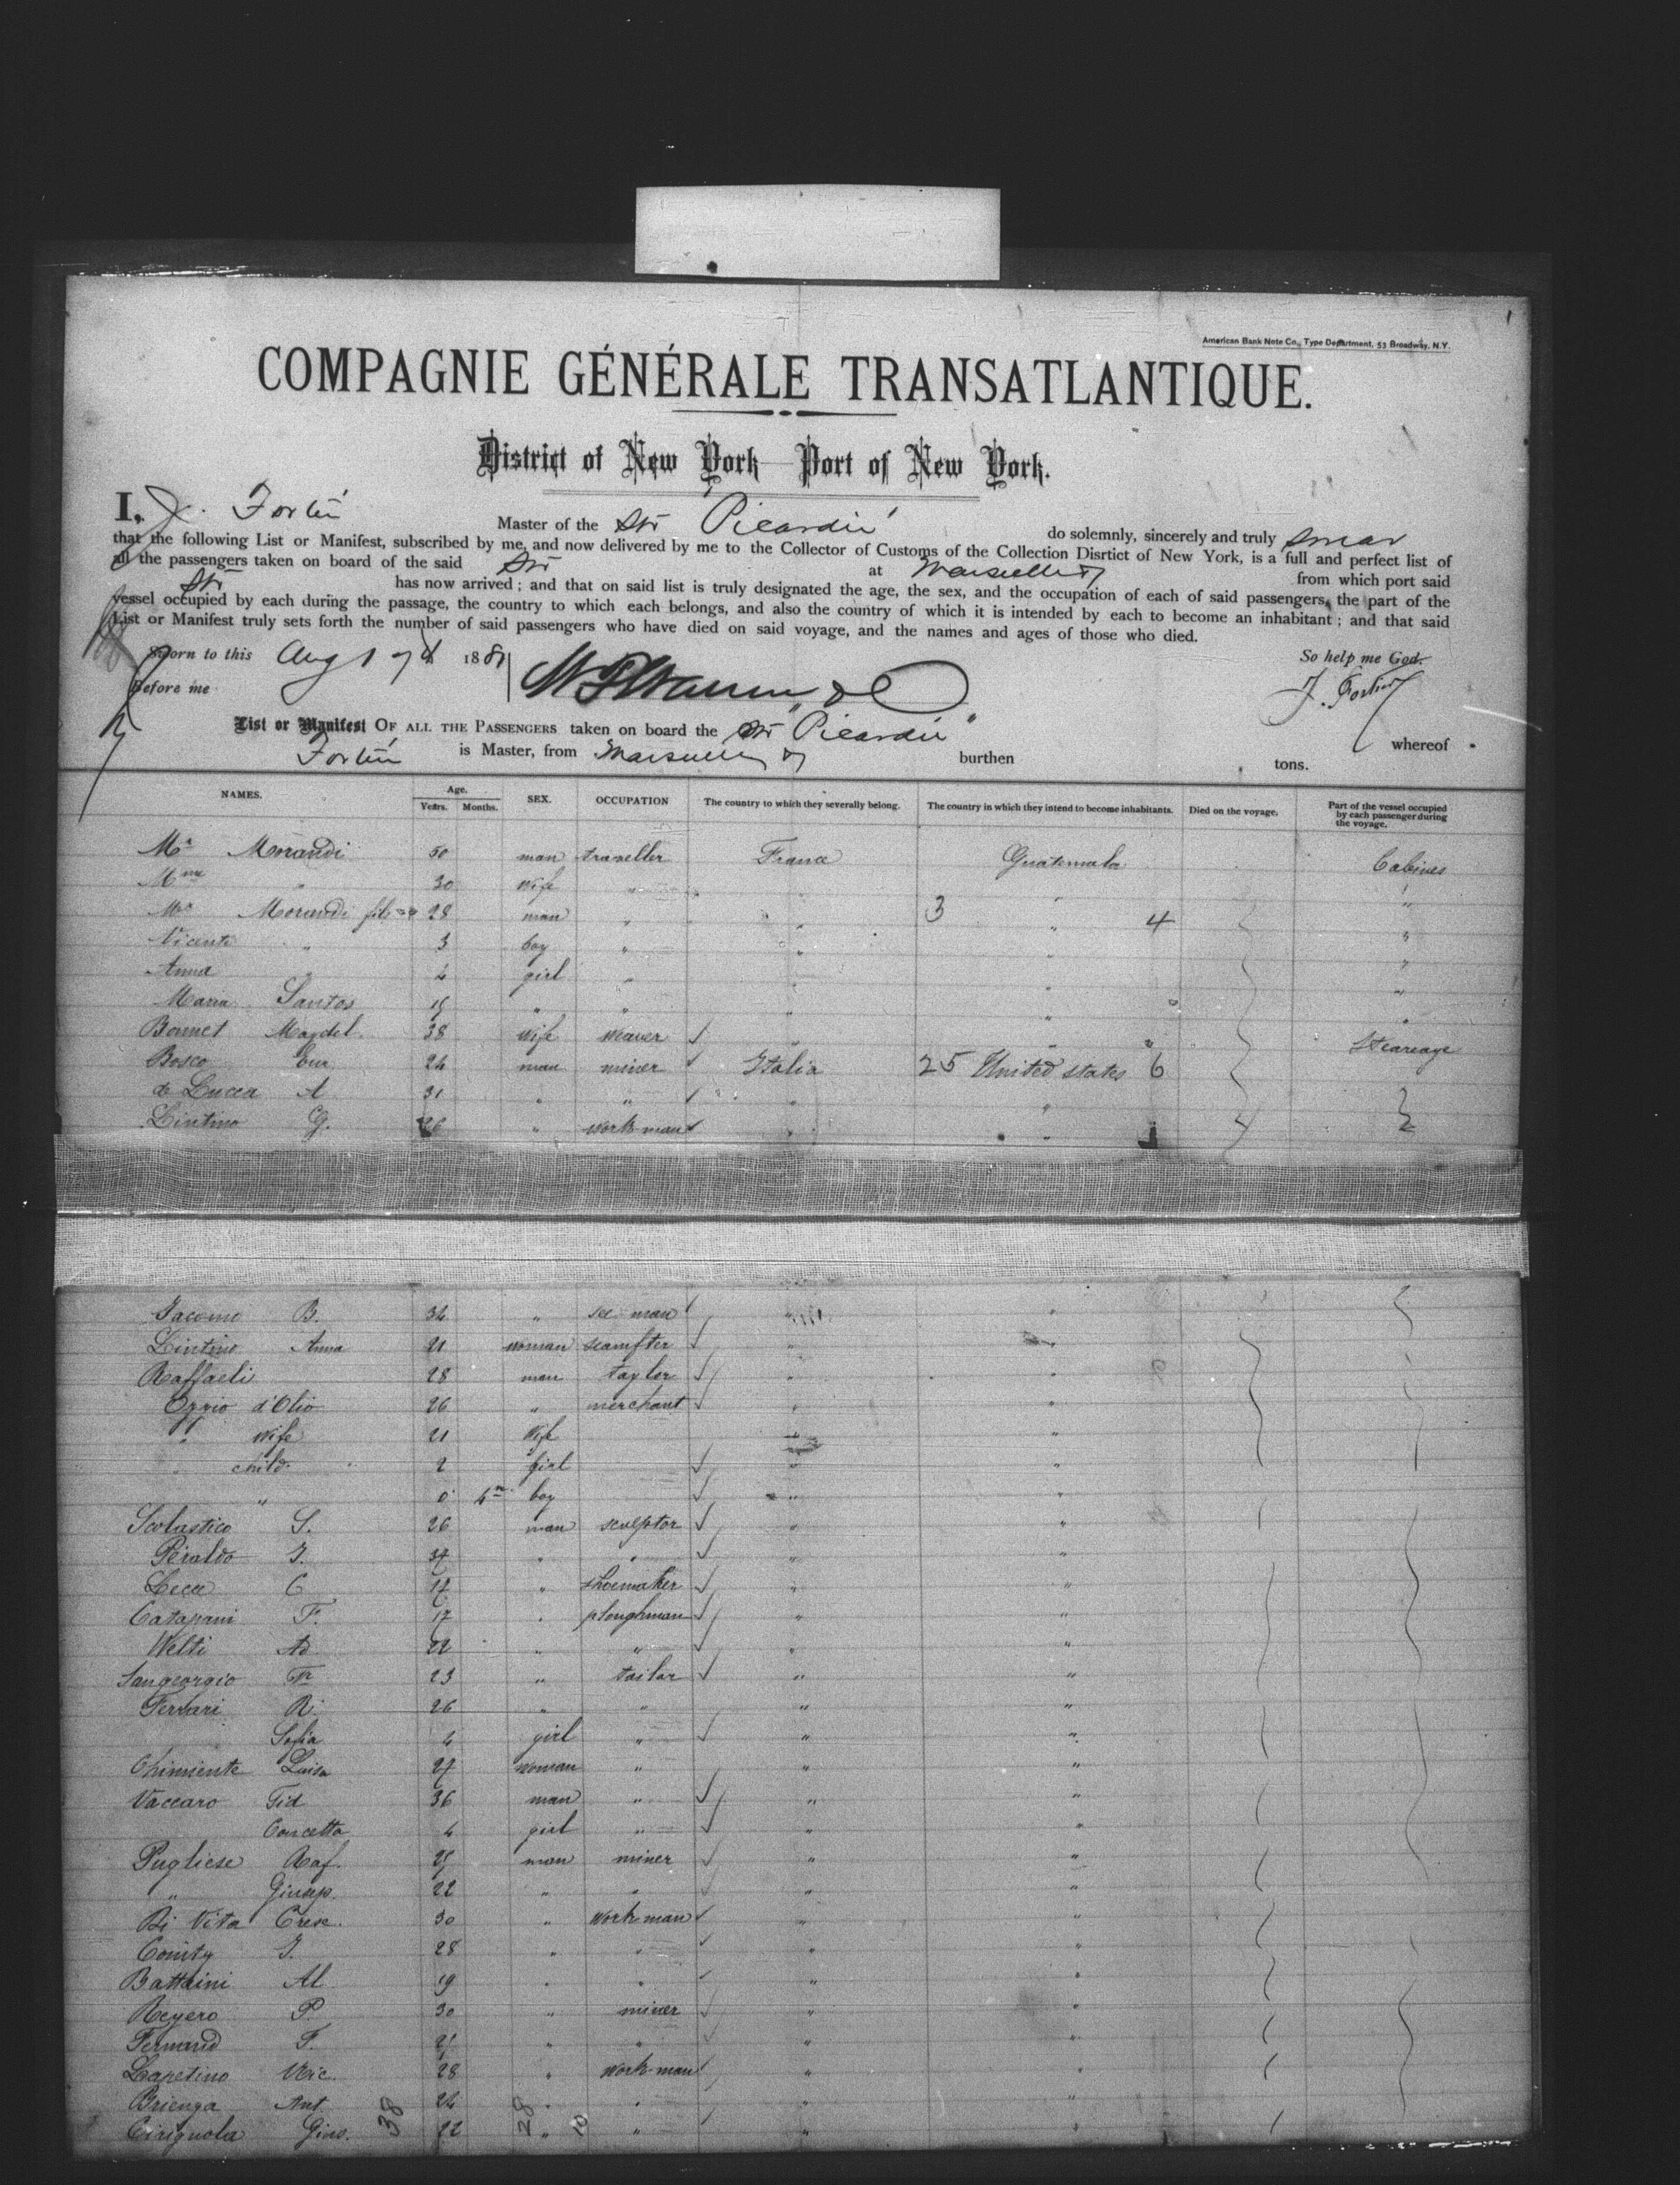 American Bank Note Co., Type Department, 53 Broadway, N.Y.
COMPAGNIE GÉNÉRALE TRANSATLANTIQUE.
District of New York—Port of New York.
I, J. Fortin Master of the Str Picardie do solemnly, sincerely and truly swear
that the following List or Manifest, subscribed by me, and now delivered by me to the Collector of Customs of the Collection Disrtict of New York, is a full and perfect list of
all the passengers taken on board of the said Str at Marseilles from which port said
Str has now arrived; and that on said list is truly designated the age, the sex, and the occupation of each of said passengers, the part of the
vessel occupied by each during the passage, the country to which each belongs, and also the country of which it is intended by each to become an inhabitant; and that said
List or Manifest truly sets forth the number of said passengers who have died on said voyage, and the names and ages of those who died.
Sworn to this Aug 188 So help me God.
Before me J. Fortin
List or Manifest OF ALL THE PASSENGERS taken on board the Str "Picardie" whereof
Fortin is Master, from Marseilles burthen tons.
NAMES. Age. Years. Months. SEX. OCCUPATION The country to which they severally belong. The country in which they intend to become inhabitants. Died on the voyage. Part of the vessel occupied by each passenger during the voyage.
Mr Morandi 50 man traveller France Guatemala Cabines
Mme " 30 wife " " " "
Mr Morandi fils 28 man " " 3 " 4 "
Vicente " 3 boy " " " "
Anna " 4 girl " " " "
Maria Santos " " " " "
Bonnet Magdel. 38 wife weaver " " Steareage
Bosco 24 man miner Italia 25 United states 6
de Lucca A 31 " " " "
Lintino G. 26 " workman " "
Jacomo B. 34 " see man " "
Lintino Anna 21 woman seamfter " "
Raffaeli 28 man taylor " "
Ozzio d'Olio 26 " merchant " "
" wife 21 wife " "
" child 2 girl " "
" 0 4m boy " "
Scolastico S. 26 man sculptor " "
Peraldo J. 37 " " " "
Lecce C 17 " shoemaker " "
Catapani F. 17 " ploughman " "
Welti Ad. 22 " " " "
Sangeorgio Fr 23 " tailor " "
Ferrari Ri. 26 " " " "
Sofia 4 girl " " "
Chimiente Luisa 27 woman " " "
Vaccaro Fid 36 man " " "
Concetta 4 girl " " "
Pugliese Raf. man miner " "
" Giusep. 22 " " " "
Di Vita Cresc. 30 " workman " "
Conity J. 28 " " " "
Battaini Al 19 " " " "
Reyero P. 30 " miner " "
Fernand F. " " " "
Lapetino Vic. 28 " workman " "
Brienza Ant. 24 " " " "
Cirignola Gius. 38 22 28 " 10 " " "